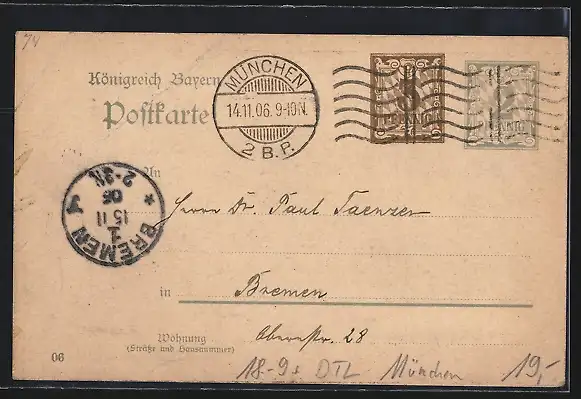 74
Königreich Bayern
Postkarte
MÜNCHEN
14.11.06. 9-10 N.
2 B.P.
3
PFENNIG
PFENNIG
An
BREMEN
1
15 11
06
2-3N
*
Herrn Dr. Paul Taenzer
in Bremen
Wohnung
(Straße und Hausnummer)
Obernstr. 28
06
18-9s DTL München 19,-